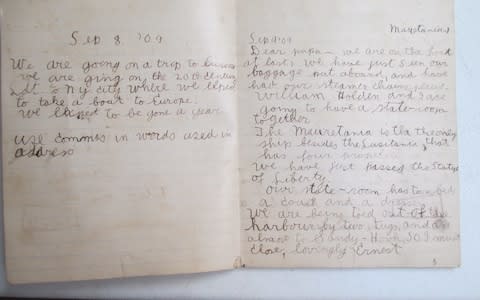 Sep 8. '09
We are going on a trip to Europe
we are ging on the 20th century
to N.y city where we expect
to take a boat to Europe.
We expect to be gone a year
use commas in words used in
address
Mauretania
Sep 9 '09
Dear papa — we are on the boat
at last. We have just seen our
baggage put aboard, and have
had our steamer chairs placed.
William Holden and I are
going to have a state-room
together
The Mauretania is the only
ship besides the Lusitania that
has four
We have just passed the Statue
of Liberty.
Our state-room has two bed
a couch and a dresser.
We are being toed out of the
harbour by two tugs, and are
almost to Sandy-Hook, SO I must
close, lovingly Ernest